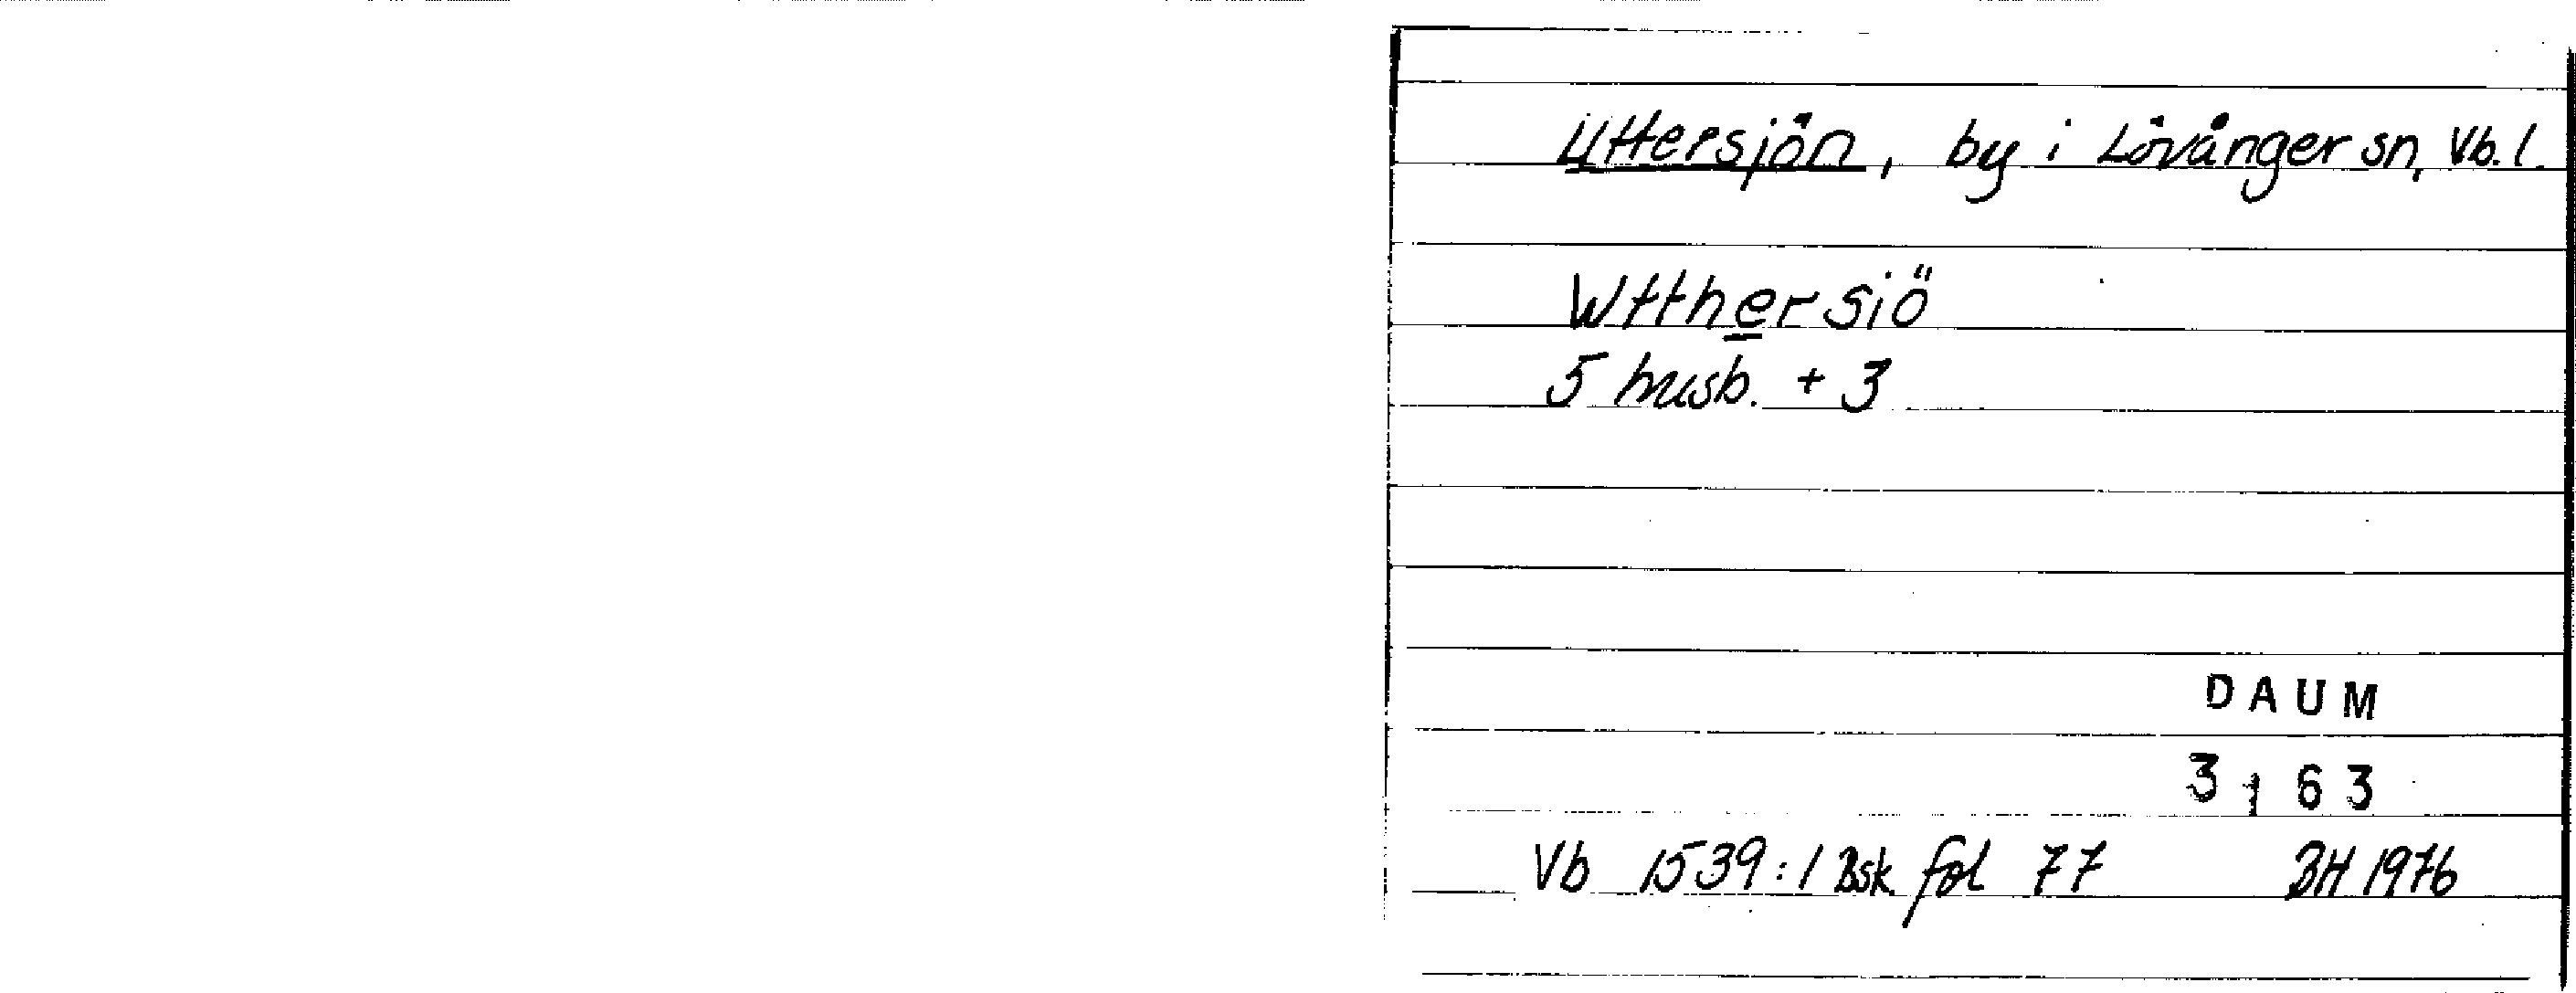 Uttersjön, by i Lövånger sn, Vb. l.
Wtthersiö
5 husb. + 3
DAUM
3163
Vb 1539:1 Bsk fol 77 BH 1976